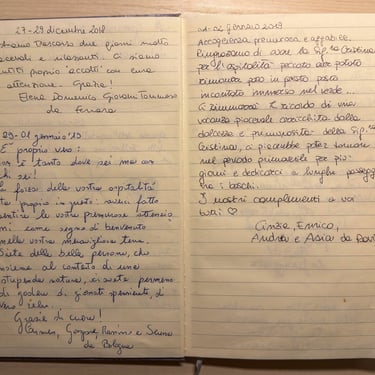 27-29 dicembre 2018
Abbiamo trascorso due giorni molto
piacevoli e rilassanti. Ci siamo
sentiti proprio "accolti" con cura
attenzione. Grazie!
Elena Domenico Giovanni Tommaso
da Ferrara
29-01 gennaio '19
È proprio vero:
non è tanto dove sei ma con
chi sei!
La forza della vostra ospitalità
sta proprio in questo: averci fatto
sentire le vostre premurose attenzio
ni come segno di benvenuto
nella vostra meravigliosa terra.
Siete delle belle persone, che
insieme al contesto di una
stupenda natura, ci avete permesso
di godere di giornate
vero relax...
Grazie di cuore!
Carmen, e Serena
da Bologna
01-02 gennaio 2019
Accoglienza premurosa e affabile.
Ringraziamo di cuore la Sig.ra Cristina
per l'ospitalità peccato aver potuto
rimanere solo in questo posto
incantato immerso nel verde...
Ci rimarrà il ricordo di una
vacanza piacevole arricchita dalla
dolcezza e premurosità della Sig.ra
Cristina, ci piacerebbe poter tornare
nel periodo primaverile per più
giorni e dedicarci a lunghe passeggia
nei boschi.
I nostri complimenti a voi
tutti ♡
Cinzia, Enrico,
Andrea e Asia da